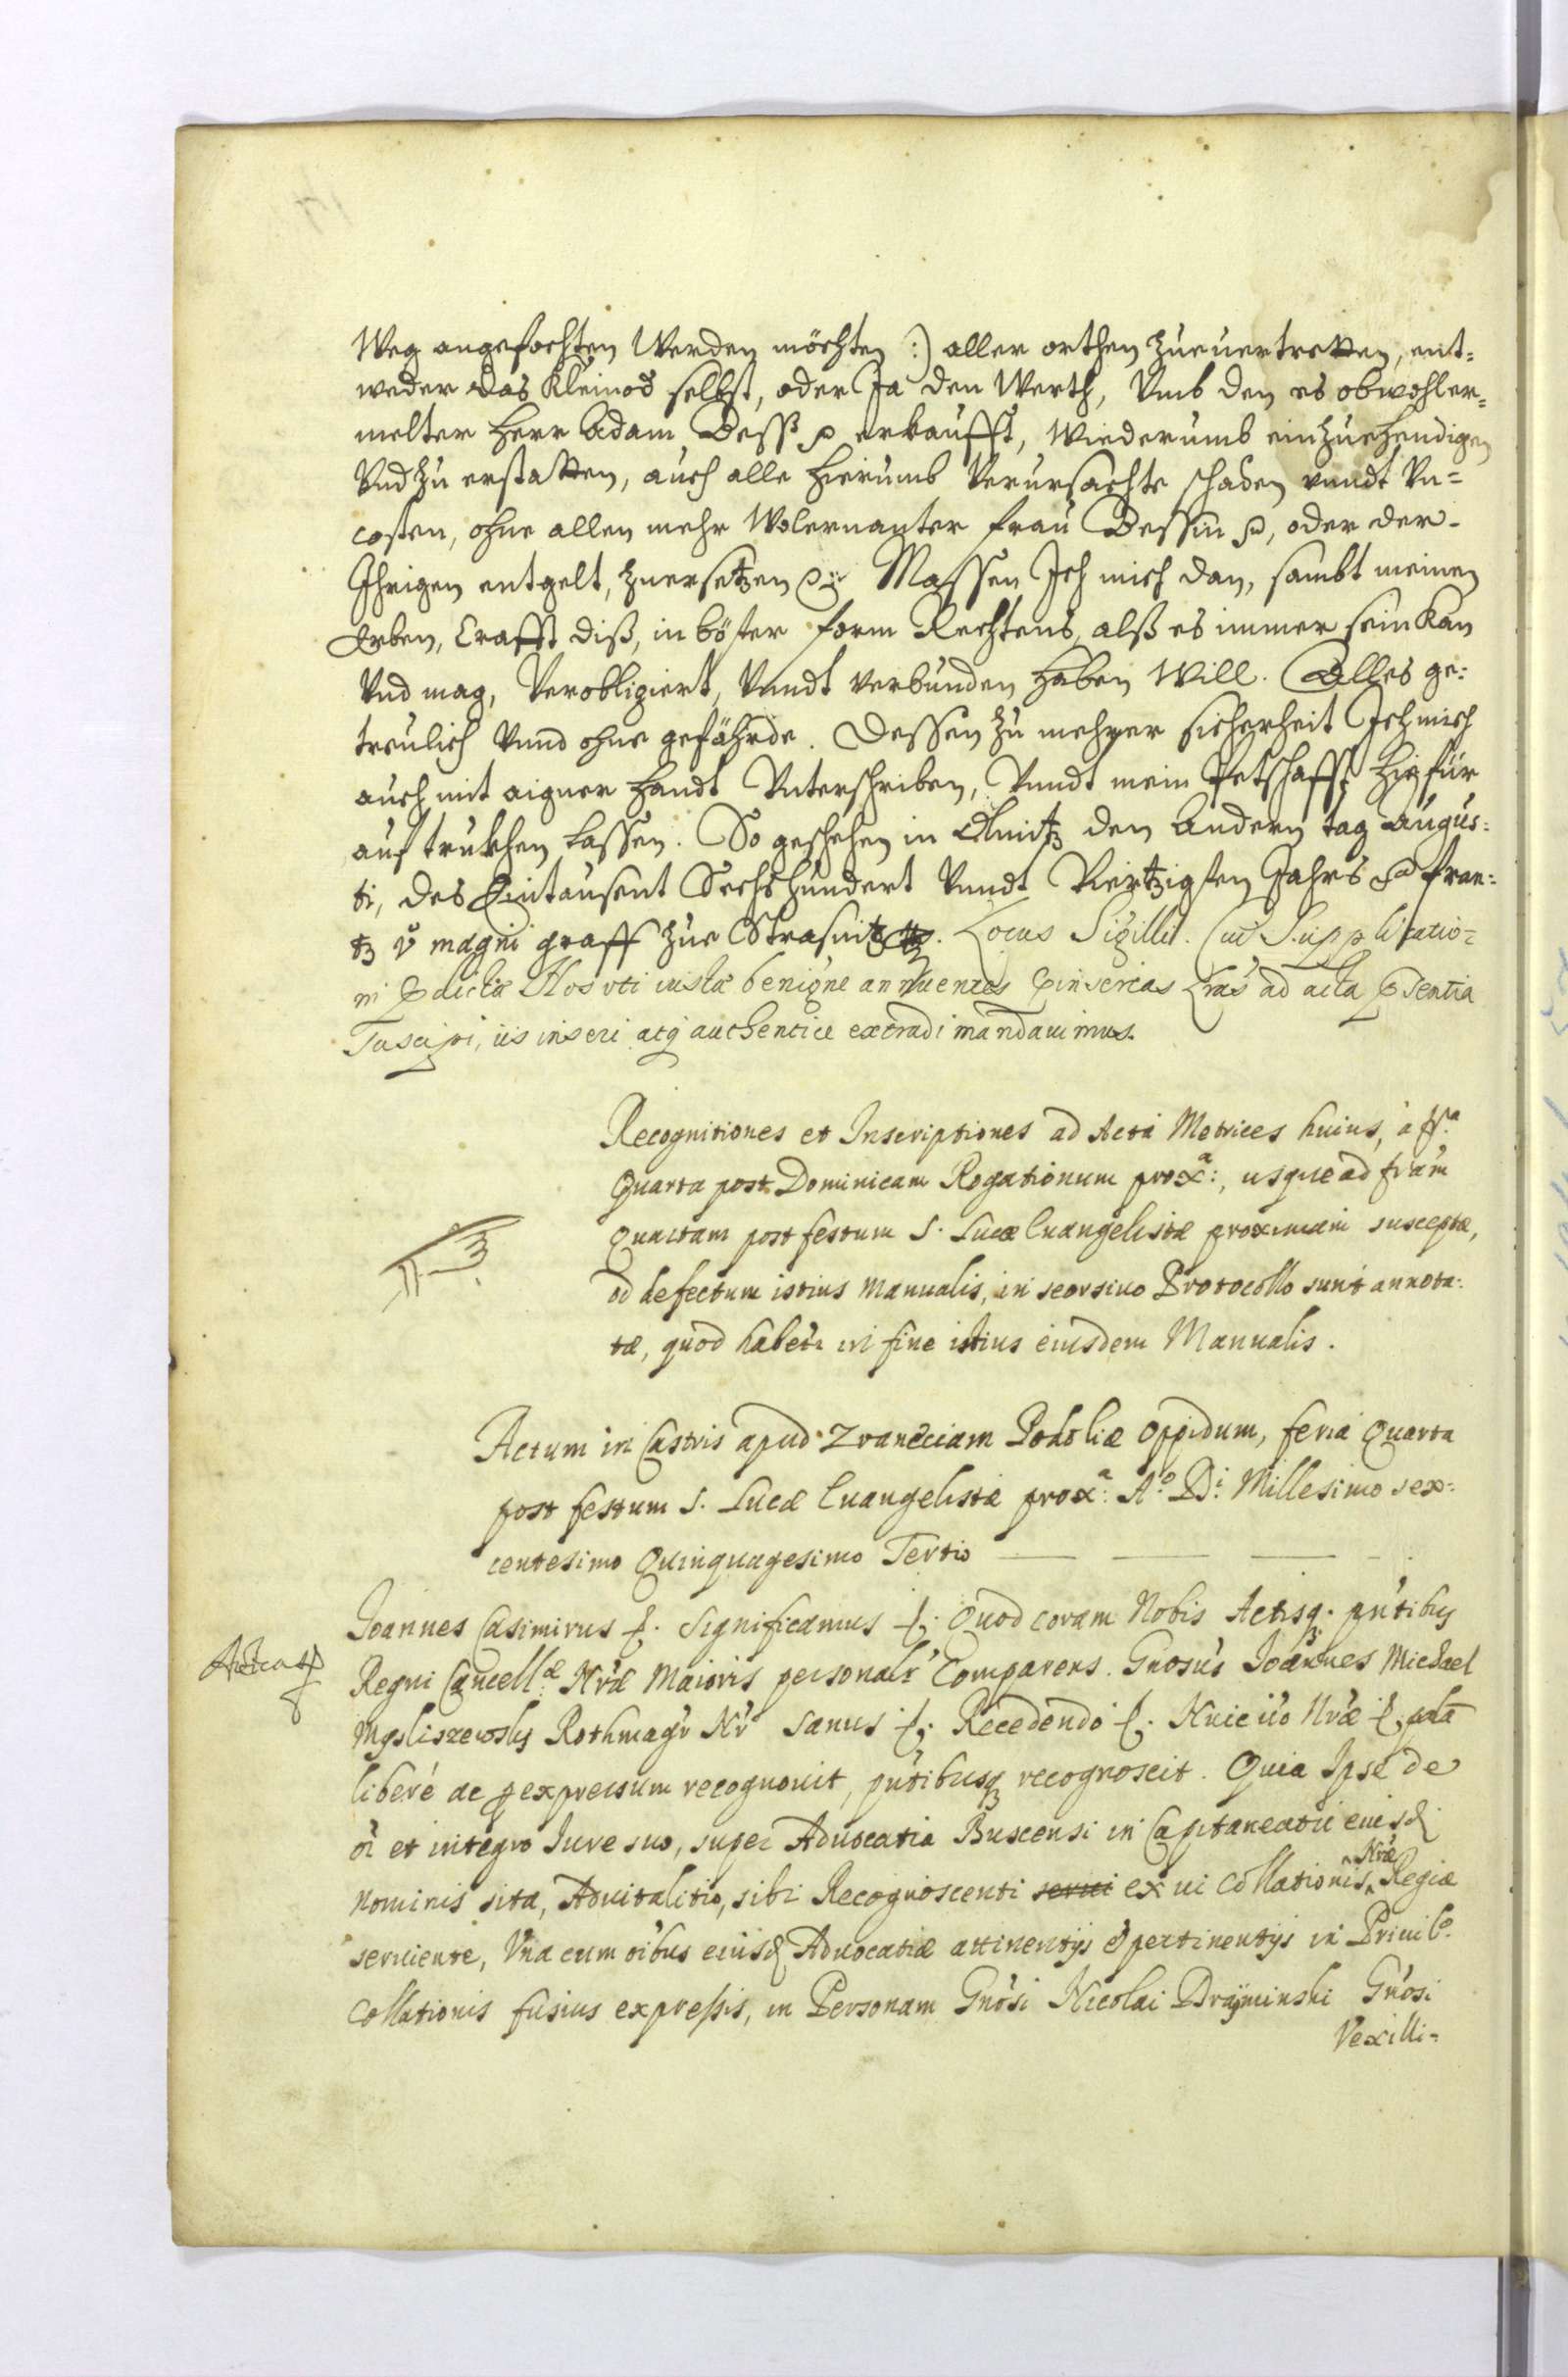 Weg angefochten Werden möchten :) aller orthen zuuertretten, ent=
weder das Kleinod selbst, oder Ja den Werth, Vmb den es obwohler=
melter Herr Adam Dess p erkaufft, Wiederumb einzuehendigen
Vnd zu erstatten, auch alle hierumb Verursachte schaden vnndt Vn=
costen, ohne allen mehr Wolernanter frau Dessin p, oder der
Ihrigen entgelt, zuersetzen p Massen Ich mich dan, sambt meinen
Erben, Crafft diß, in böster form Rechtens, alß es immer sein kan
Vnd mag, Verobligiert, Vnndt verbunden haben Will. Alles ge=
treulich Vnnd ohne gefährde. Dessen zu mehrer sicherheit Ich mich
auch mit aigner Handt Vnterschriben, Vnndt mein Petschafft hiefür
auf trukhen lassen. So geschehen in Olmitz den Andern tag Augus=
ti, des Eintausent Sechshundert Vnndt Viertzigsten Jahrs p fran=
tz v magni graff zue Strasnitz. Locus Sigilli. Cui Supplicatio=
ni pdictæ Nos uti iustæ benigne annuentes pinsertas Lras ad acta psentia
suscipi, iis inseri atq authentice extradi mandauimus.
Recognitiones et Inscriptiones ad Acta Metrices huius, à ff.a
Quarta post Dominicam Rogationum prox.a:, usque ad fram
Quartam post festum S. Lucæ Euangelistæ proximam susceptæ,
ob defectum istius Manualis, in seorsiuo Protocollo sunt annota=
tæ, quod habetr in fine istius eiusdem Manualis.
Actum in Castris apud Zvaneciam Podoliæ oppidum, feria Quarta
post festum S. Lucæ Euangelistæ prox:a A:o D:i Millesimo sex=
centesimo Quinquagesimo Tertio
Joannes Casimirus &. Significamus &. Quod coram Nobis Actisq. pntibus
Regni Cancell:æ Nræ Maioris personalr Comparens. Gnosus Joannes Michael
Mysliszewsky Rothmagr Nr Sanus &. Recedendo &. Huicuo Nræ &
liberé ac p expressum recognouit, pntibusq recognoscit. Quia Ipse de
oi et integro Iure suo, super Aduocatia Buscensi in Capitaneatu eiusd
nominis sita, Aduitalitio, sibi Recognoscenti serui ex ui Collationis Nræ Regiæ
seruiente, Vna cum oibus eiusd Aduocatiæ attinentijs & pertinentijs in Priuil:o
Collationis fusius expressis, in Personam Gnosi Nicolai Drayminski Gnosi
Vexilli=